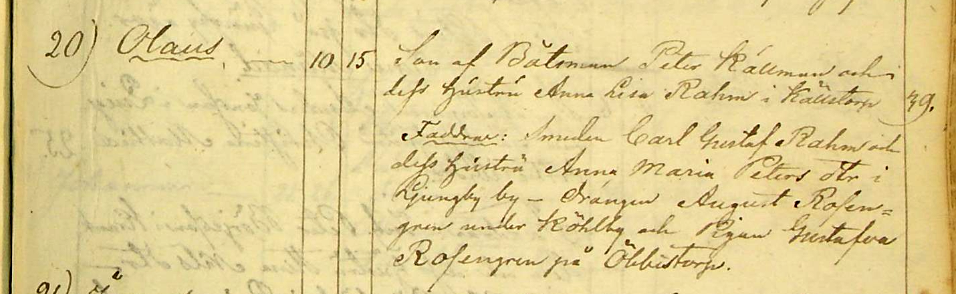 20) Olaus 10 15 Son af Båtsman Peter Källman och
dess hustru Anna Lisa Rahm i Källstorp 39.
Faddrar: Smeden Carl Gustaf Rahm och
dess hustru Anna Maria Peters dtr i
Ljungby by – Drängen August Rosen=
gren under Köhlby och Pigan Gustafva
Rosengren på Öbbestorp.